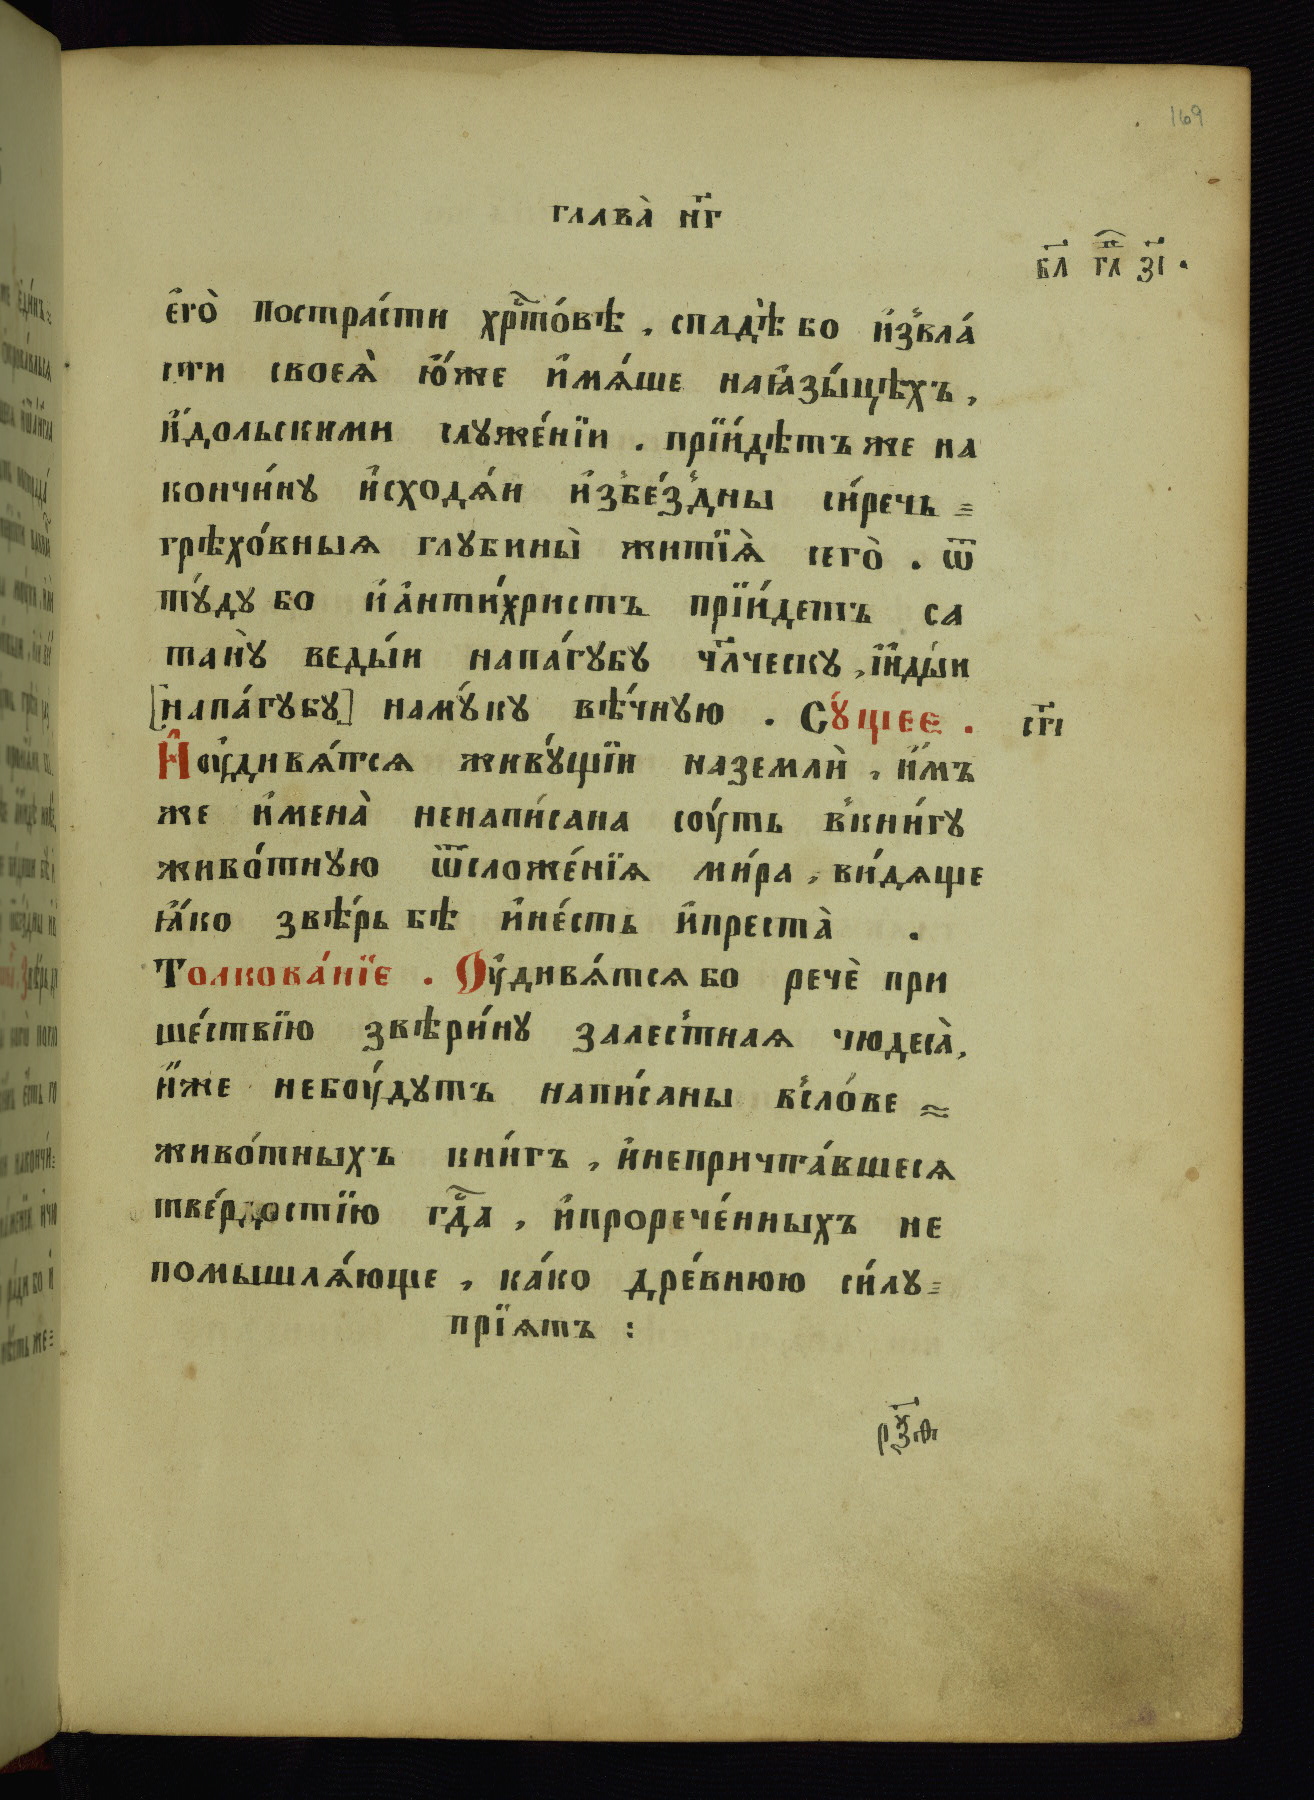 169
глава̀ н҃г
бл҃ гл҃ з҃і .
є҆го̀ постра́сти хрⷭ҇то́вѣ , спадѐ бо и҆з̾вла́
сти своеѧ̀ ю҆́же и҆мѧ́ше наꙗ҆зы́цѣхъ ,
и҆́дольскими служе́нїи . прїи́детъ же на
кончи́ну и҆сходѧ́и и҆з̾бе́з̾дны си́речь =
грѣхо́вныѧ глубины̀ житїѧ̀ сего̀ . ѿ
ту́ду бо и҆а҆нти́христъ прїи́детъ са
тану̀ веды́и напа́губу ч҃лческу , и҆и҆ды́и
[напа́губу] наму́ку вѣ́чную . Су́щее . с҃гі
И҆оу҆дивѧ́тсѧ живу́щїи наземлѝ , и҆́мъ
же и҆мена̀ ненапи́сана соу́ть в̾кни́гу
живо́тную ѿсложе́нїѧ ми́ра , ви́дѧще
ꙗ҆́ко звѣ́рь бѣ и҆не́сть и҆преста̀ .
Толкова́нїе . Оу҆дивѧ́тсѧ бо речѐ при
ше́ствїю звѣри́ну залес̾тнаѧ чюдеса̀ ,
и҆́же небоу́дутъ напи́саны в̾сло́ве =
живо́тныхъ кни́гъ , и҆непричта́вшесѧ
тве́рдостїю гдⷭ҇а , и҆прорече́нныхъ не
помышлѧ́юще , ка́ко дре́внюю си́лу =
прїѧтъ :